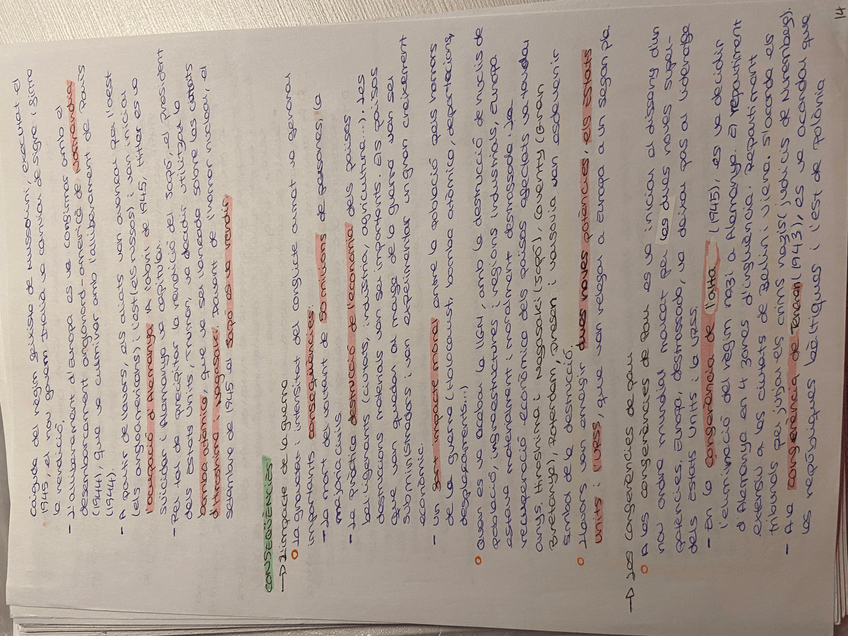 caiguda del règim feixista de Mussolini, executat el
1945, el nou govern italià va canviar de signe i signa
la rendició.
- L'alliberament d'Europa es va confirmar amb el
desembarcament angloamericà de Normandia
(1944), que va culminar amb l'alliberament de París
(1944).
- A partir de llavors, els aliats van avançar per l'oest
(els angloamericans) i l'est (els russos) i van iniciar
l'ocupació d'Alemanya. A l'abril de 1945, Hitler es va
suïcidar i Alemanya va capitular.
- Per tal de precipitar la rendició del Japó, el president
dels Estats Units, Truman, va decidir utilitzar la
bomba atòmica, que va ser llançada sobre les ciutats
d'Hiroshima i Nagasaki. Davant de l'horror nuclear, el
setembre de 1945 el Japó es va rendir.
CONSEQÜÈNCIES
→ L'impacte de la guerra
La gravetat i intensitat del conflicte armat va generar
importants conseqüències:
- La mort del voltant de 50 milions de persones, la
majoria civils.
- La pràctica destrucció de l'economia dels països
bel·ligerants (ciutats, indústria, agricultura...). Les
destruccions materials van ser importants. Els països
que van quedar al marge de la guerra van ser
subministradors i van experimentar un gran creixement
econòmic.
- Un fort impacte moral entre la població pels horrors
de la guerra (Holocaust, bomba atòmica, deportacions,
desplaçaments...)
Quan es va acabar la IIGM, amb la destrucció de nuclis de
població, infraestructures i regions industrials, Europa
estava materialment i moralment destrossada. La
recuperació econòmica dels països afectats va tardar
anys. Hiroshima i Nagasaki (Japó), Coventry (Gran
Bretanya), Rotterdam, Dresden i Varsòvia van esdevenir
símbol de la destrucció.
Llavors van emergir dues noves potències, els Estats
Units i l'URSS, que van relegar a Europa a un segon pla.
→ Les conferències de pau
A les conferències de pau es va iniciar el disseny d'un
nou ordre mundial marcat per les dues noves super-
potències. Europa, destrossada, va deixar pas al lideratge
dels Estats Units i la URSS.
- En la conferència de Ialta (1945), es va decidir
l'eliminació del règim nazi a Alemanya. El repartiment
d'Alemanya en 4 zones d'influència. Repartiment
extensiu a les ciutats de Berlín i Viena. S'acorda els
tribunals per jutjar els crims nazis (judicis de Nuremberg).
- A la conferència de Teheran (1943), es va acordar que
les repúbliques bàltiques i l'est de Polònia
14